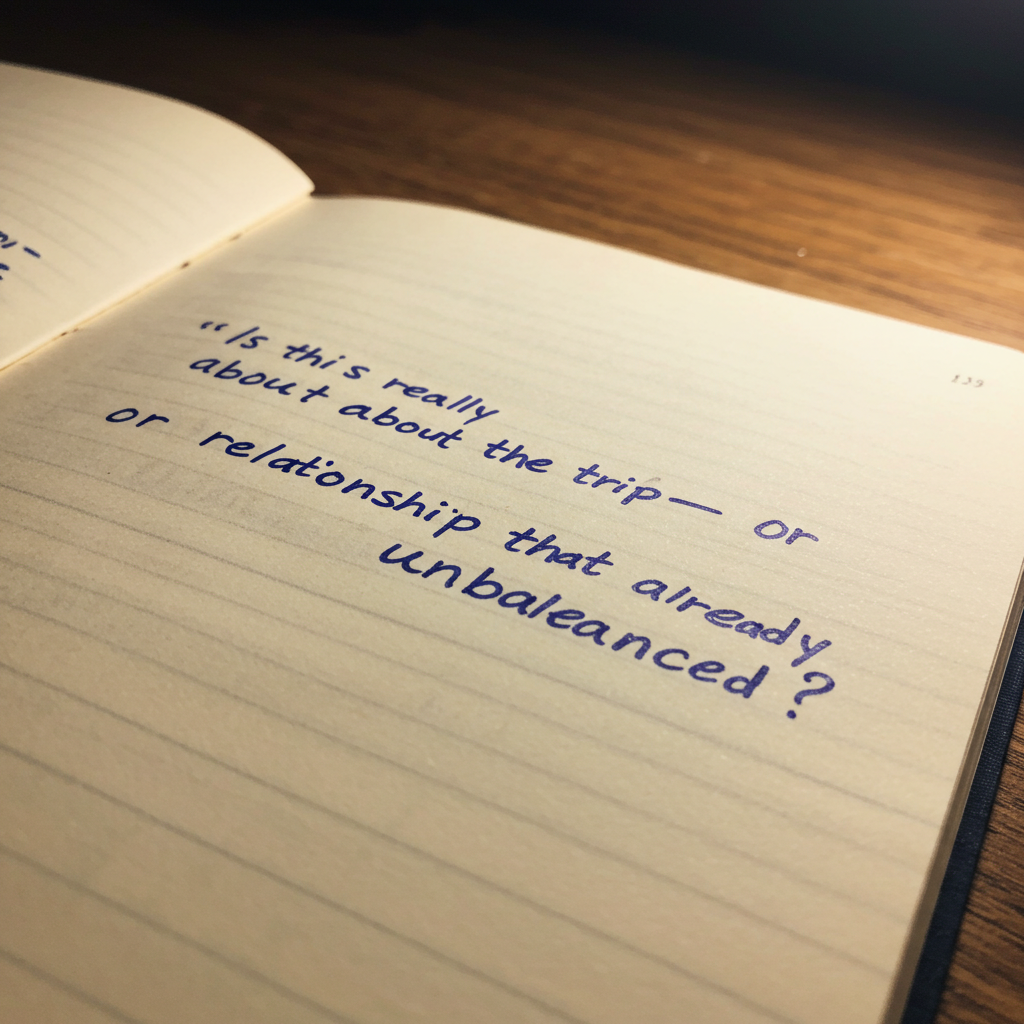 “Is this really
about about the trip— or
or relationship that already
unbaleanced?